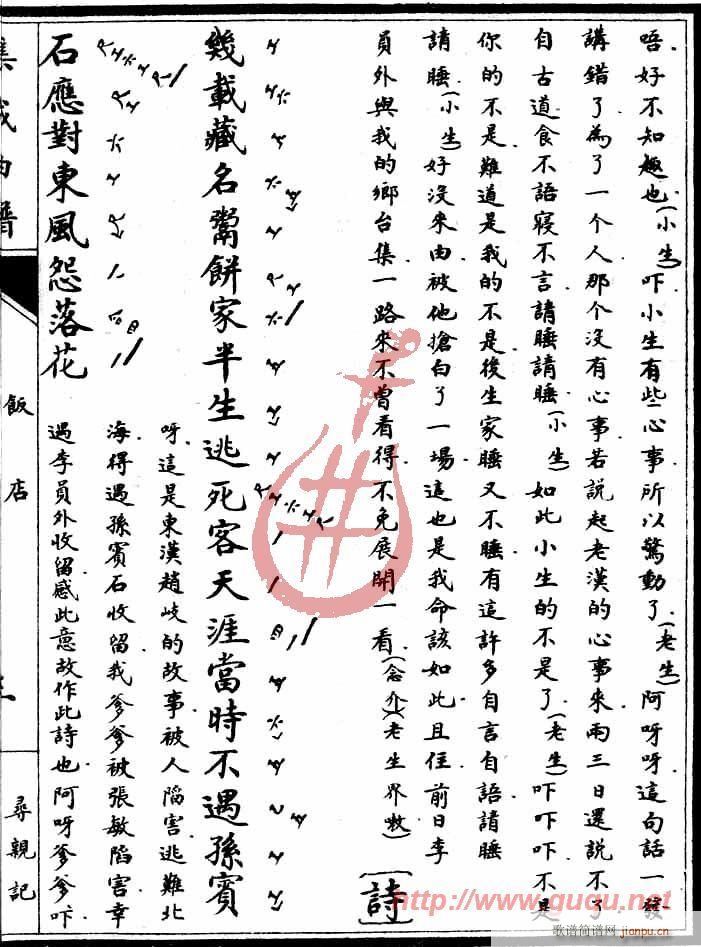 唔好不知趣也(小生)吓小生有些心事所以驚動了(老生)阿呀呀這句話一發
講錯了為了一个人那个沒有心事若說起老漢的心事來兩三日還說不了
自古道食不語寢不言請睡請睡(小生)如此小生的不是了(老生)吓吓吓不是
你的不是難道是我的不是後生家睡又不睡有這許多自言自語請睡
請睡(小生)好沒來由被他搶白了一場這也是我命該如此且住前日李
員外與我的鄉台集一路來不曾看得不免展開一看(念介)(老生界嗽)
[詩]
幾載藏名鬻餅家半生逃死客天涯當時不遇孫賓
石應對東風怨落花
呀這是東漢趙岐的故事被人陷害逃難北
海得遇孫賓石收留我爹爹被張敏陷害幸
遇李員外收留感此意故作此詩也阿呀爹爹吓
集成曲譜
飯店
尋親記
http://www.guqu.net
歌谱简谱网
jianpu.cn